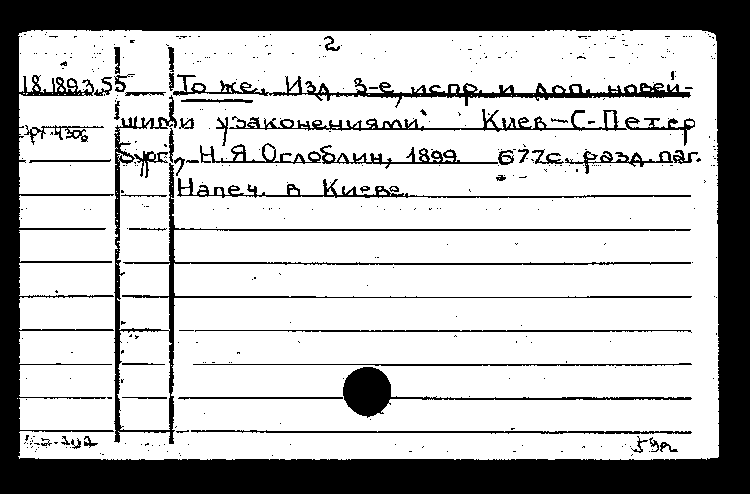 2
18.189.3.55 То же. Изд. 3-е, испр. и доп. новей-
шими узаконениями. Киев-С-Петер
бург, Н.Я. Оглоблин, 1899. 677с. разд. паг.
Напеч. в Киеве.